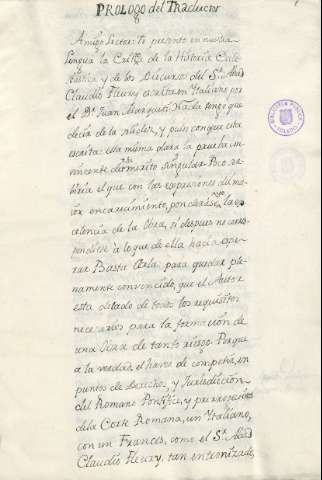 PROLOGO del Traductor
Amigo Lector: te presento en nuestra
lengua la Critica de la Historia Ecle-
siastica y de los Discursos del Sr. Abad
Claudio Fleury escrita en Ytaliano por
el Dr. Juan Marqueti. Nada tengo que
decir de la solidez, y pulso con que está
escrita: ella misma dara la prueba
de su merito singular. Poco
el que con las expresiones del ma-
ior encarecimiento, ponderase la ex-
celencia de la Obra, si despues no corres-
pondiese a lo que de ella hacia espe-
rar. Basta para quedar ple-
namente convencido, que el Autor
esta dotado de todos los requisitos
necesarios para la formacion de
una Obra de tanto riesgo. Porque
a la verdad, el haver de competir, en
puntos de Derechos, y Jurisdiccion
del Romano Pontifice, y prerrogativas
de la Corte Romana, un Ytaliano,
con un Frances, como el Sr. Abad
Claudio Fleury, tan